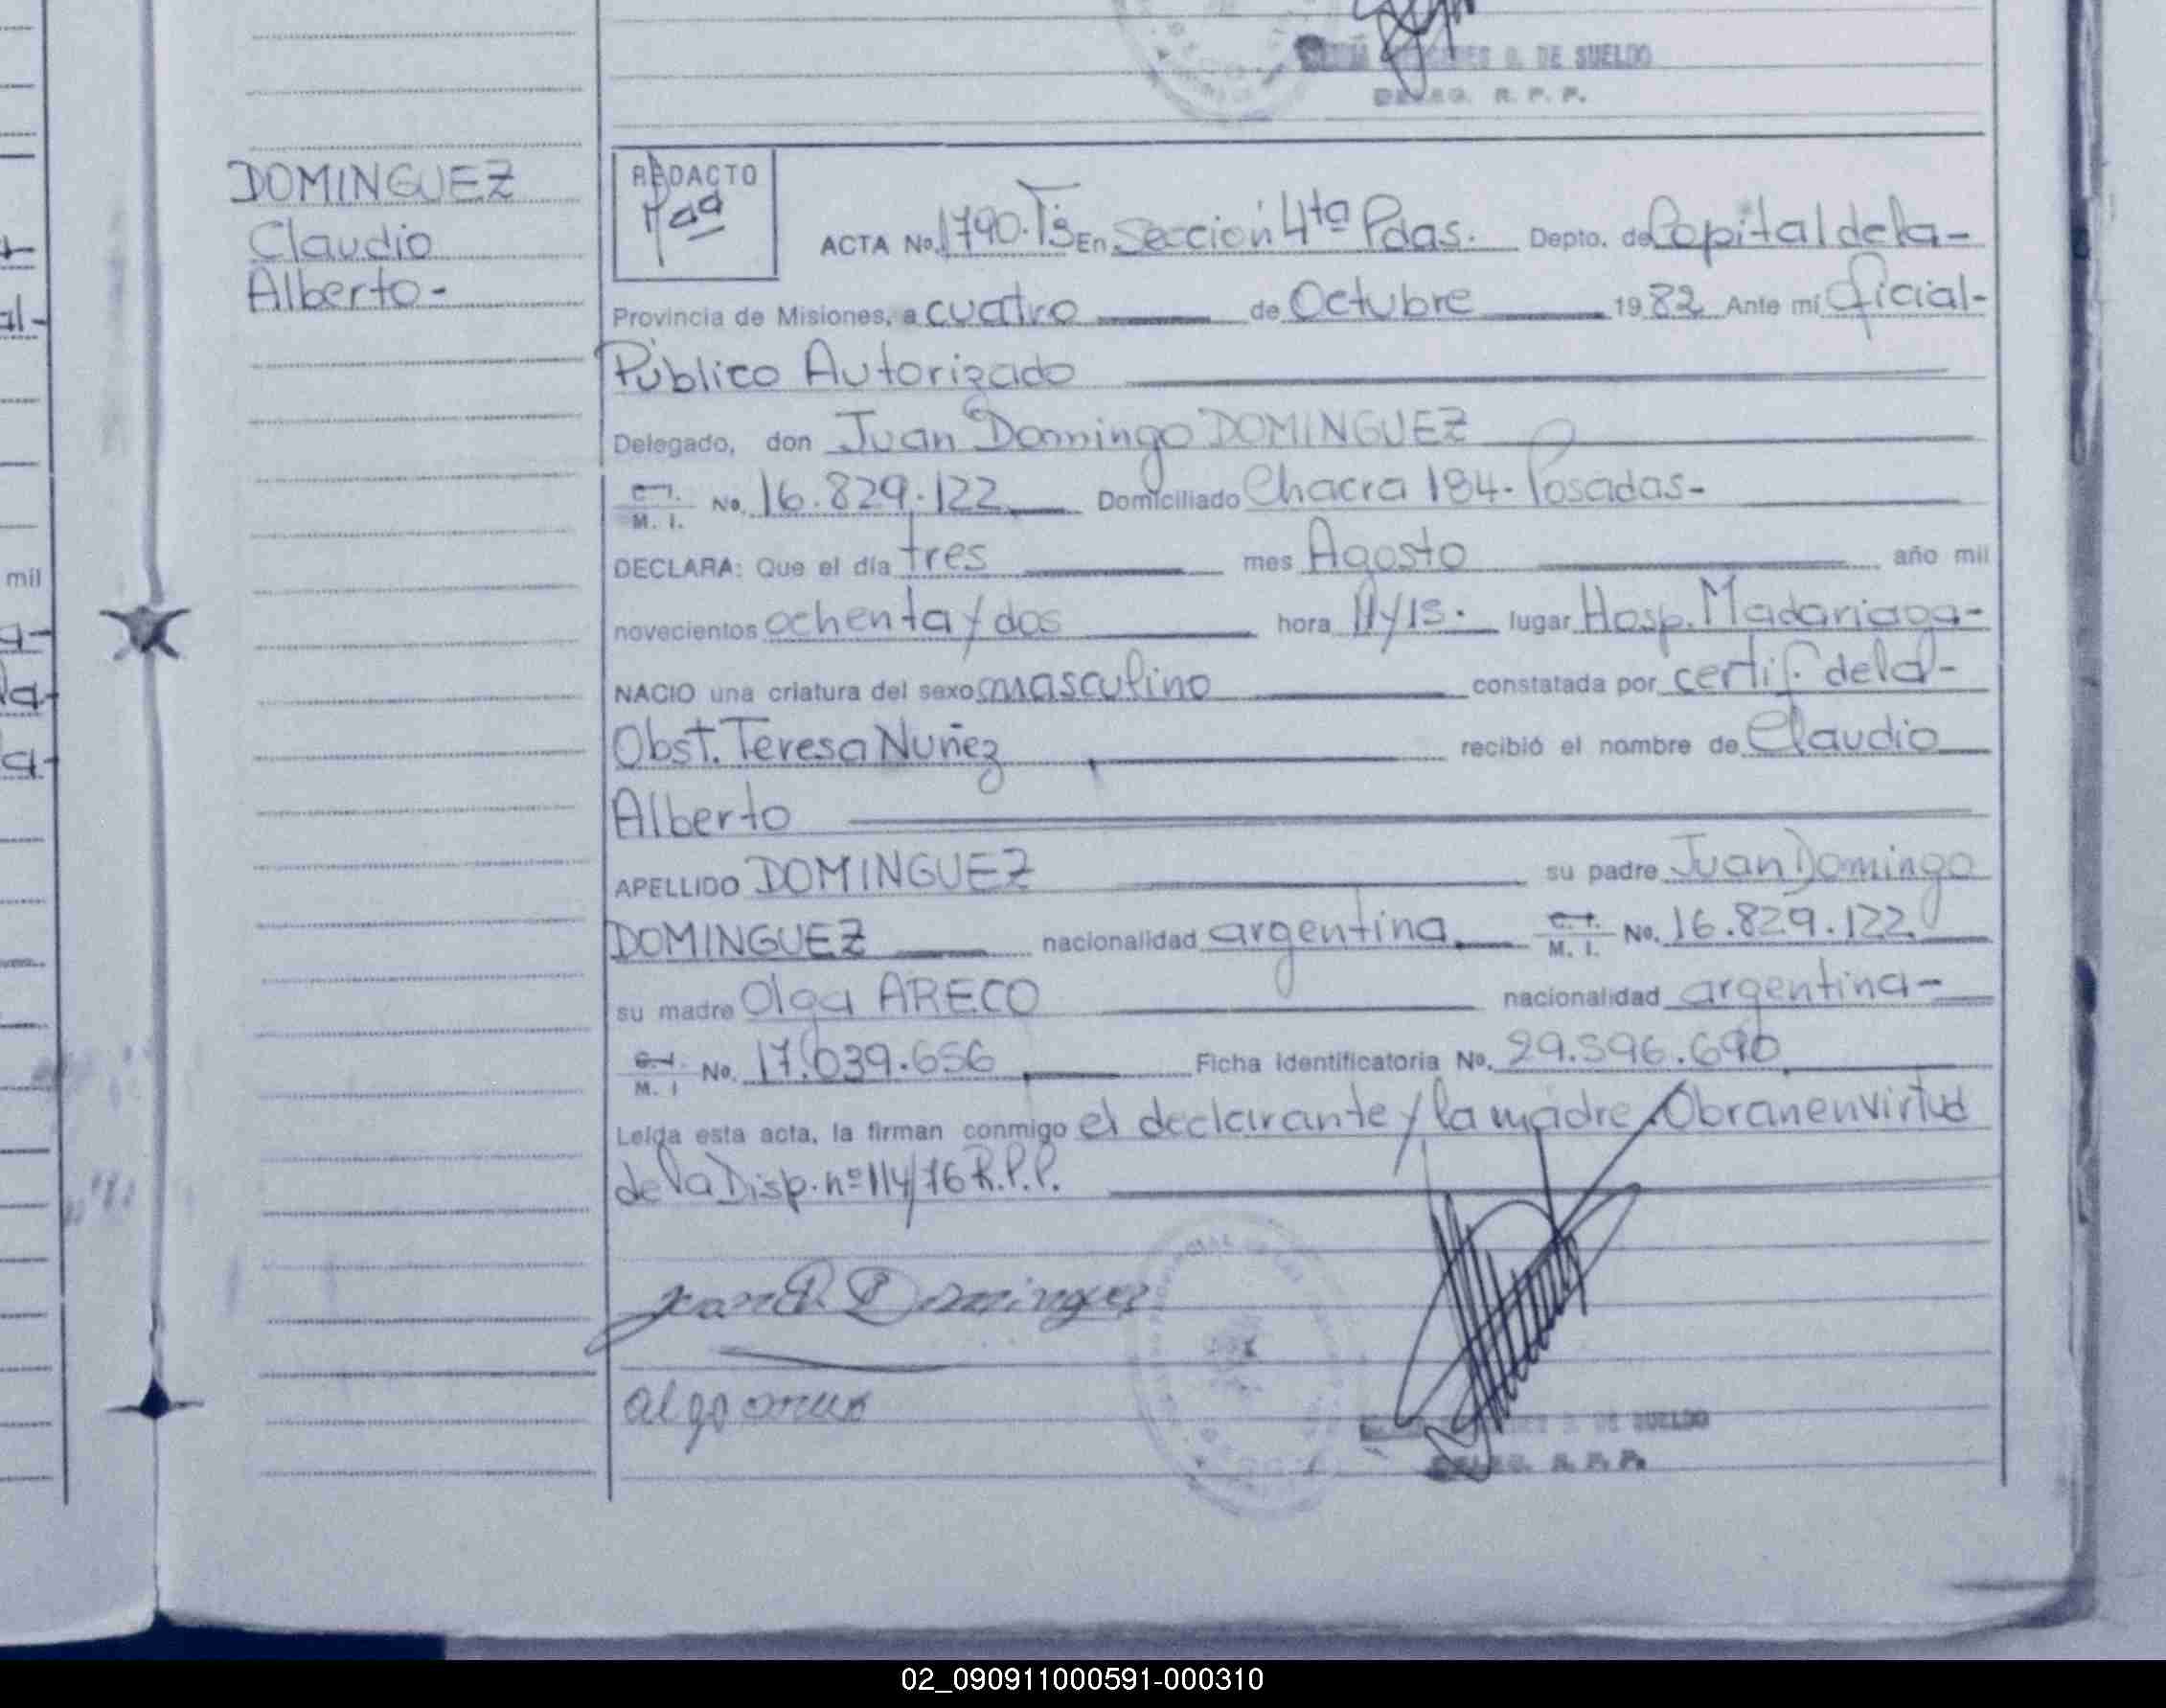 DE SUELDO
R. P. P.
DOMINGUEZ
Claudio
Alberto-
REDACTO
ACTA No. 1790. T°3 En Sección 4ta Pdas. Depto. de Capital de la-
Provincia de Misiones, a cuatro de Octubre 1982 Ante mi Oficial-
Público Autorizado
Delegado, don Juan Domingo DOMINGUEZ
C. I.
M. I. No. 16.829.122 Domiciliado Chacra 184-Posadas-
DECLARA: Que el día tres mes Agosto año mil
novecientos ochenta y dos hora 11y15. lugar Hosp. Madariaga-
NACIO una criatura del sexo masculino constatada por certif. de la-
Obst. Teresa Nuñez recibió el nombre de Claudio
Alberto
APELLIDO DOMINGUEZ su padre Juan Domingo
DOMINGUEZ nacionalidad argentina C. I. M. I. No. 16.829.122
su madre Olga ARECO nacionalidad argentina-
C. I. M. I No. 17.039.656 Ficha Identificatoria No. 29.596.690
Leída esta acta, la firman conmigo el declarante y la madre. Obran en virtud
de la Disp. nº 114/76 R.P.P.
Juan D. Dominguez
DE SUELDO
R. P. P.
mil
02_090911000591-000310